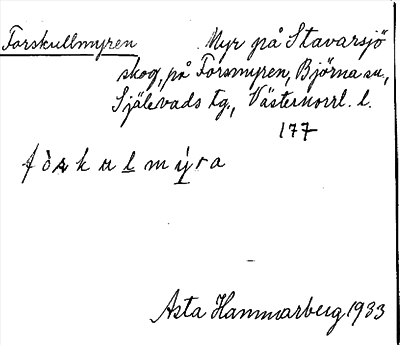 Forskullmyren Myr på Stavarsjö
skog, på Forsmyren, Björna sn,
Själevads tg., Västernorrl. l.
177
fòskulmýra
Asta Hammarberg 1933